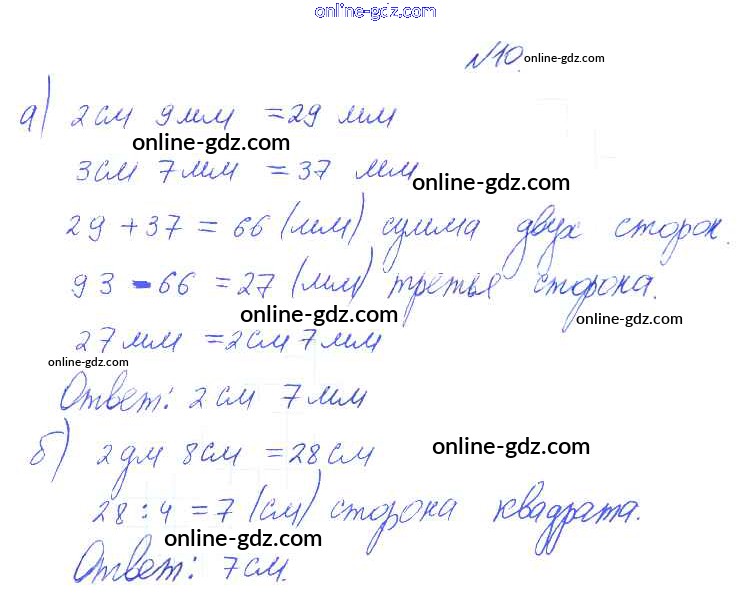 online-gdz.com
№10. online-gdz.com
а) 2см 9мм = 29 мм
online-gdz.com
3см 7мм = 37 мм
online-gdz.com
29 + 37 = 66 (мм) сумма двух сторон.
93 - 66 = 27 (мм) третья сторона.
online-gdz.com
online-gdz.com
27мм = 2см 7мм
online-gdz.com
Ответ: 2 см 7мм
б) 2дм 8см = 28см
online-gdz.com
28 : 4 = 7 (см) сторона квадрата.
online-gdz.com
Ответ: 7см.